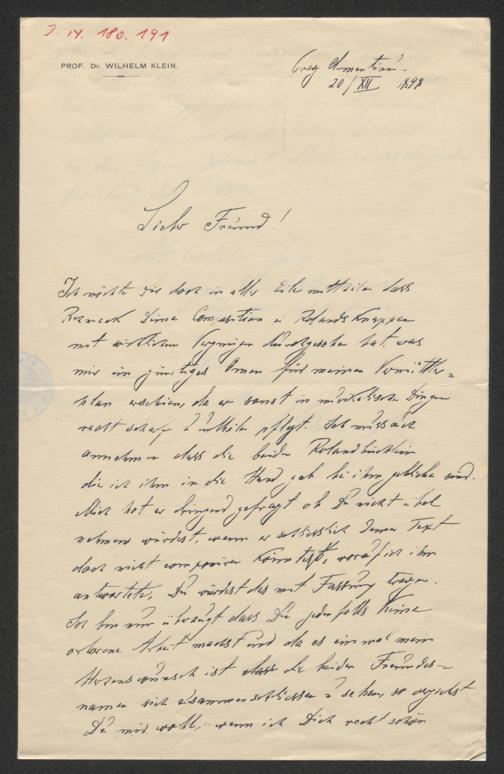 I. IX. 180.191
PROF. Dr. WILHELM KLEIN.
Prag
20/XII 1898
Lieber Freund!
Ich möchte Dir doch in aller Eile mittheilen dass
Deine Composition u Rolands Knappen
mit wirklichem Vergnügen hat, was
mir ein günstiges Omen für meinen Vermittler=
plan erschien, da er sonst in musikalischen Dingen
recht scharf zu urtheilen pflegt. Ich muss auch
annehmen dass die beiden Rolandbüchlein
die ich ihm in die Hand gab bei ihm geblieben sind.
Mich hat er dringend gefragt ob Du nicht übel
nehmen würdest, wenn er schliesslich Deinen Text
doch nicht componiren könnte, worauf ich ihm
antwortete, Du würdest das mit Fassung tragen.
Ich bin nun überzeugt dass Du jedenfalls keine
verlorene Arbeit machst und da es einmal mein
Herzenswunsch ist die beiden Freundes=
namen sich zusammenschliessen zu sehen, so verzeihst
Du mir wohl, wenn ich Dich recht schön